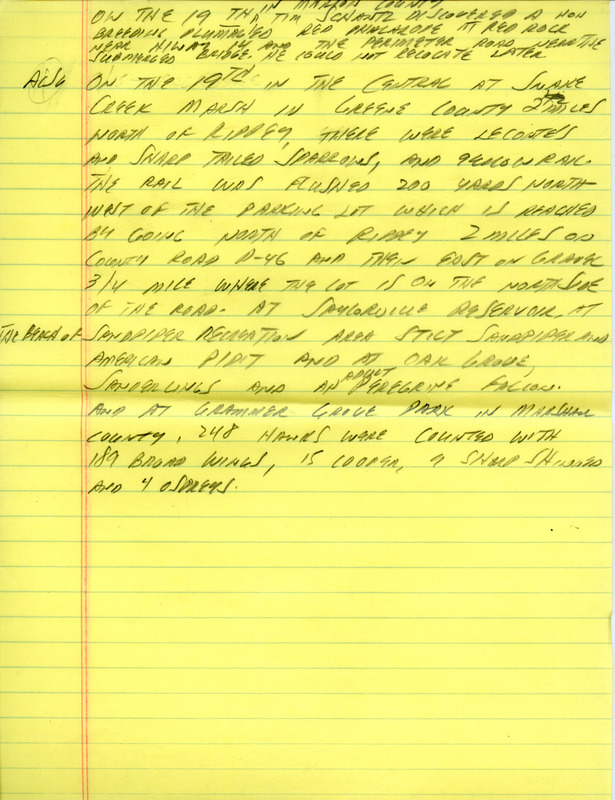 IN MARION COUNTY
ON THE 19 TH, TIM SCHANTZ DISCOVERED A NON
BREEDING PLUMAGED RED PHALAROPE AT RED ROCK
NEAR HIWAY 14 AND THE PERIMETER ROAD NEAR THE
SUBMERGED BRIDGE. HE COULD NOT RELOCATE LATER.
ALSO ON THE 19TH IN THE CENTRAL AT SNAKE
CREEK MARSH IN GREENE COUNTY 2 MILES
NORTH OF RIPPEY, THERE WERE LECONTES
AND SHARP TAILED SPARROWS, AND YELLOW RAIL.
THE RAIL WAS FLUSHED 200 YARDS NORTH
WEST OF THE PARKING LOT WHICH IS REACHED
BY GOING NORTH OF RIPPEY 2 MILES ON
COUNTY ROAD P-46 AND THEN EAST ON GRAVEL
3/4 MILE WHERE THE LOT IS ON THE NORTH SIDE
OF THE ROAD. AT SAYLORVILLE RESERVOIR AT
THE BEACH OF SANDPIPER RECREATION AREA STILT SANDPIPER AND
AMERICAN PIPIT AND AT OAK GROVE,
SANDERLINGS AND AN ADULT PEREGRINE FALCON.
AND AT GRAMMER GROVE PARK IN MARSHALL
COUNTY, 248 HAWKS WERE COUNTED WITH
189 BROAD WINGS, 15 COOPER, 9 SHARP SHINNED
AND 4 OSPREYS.